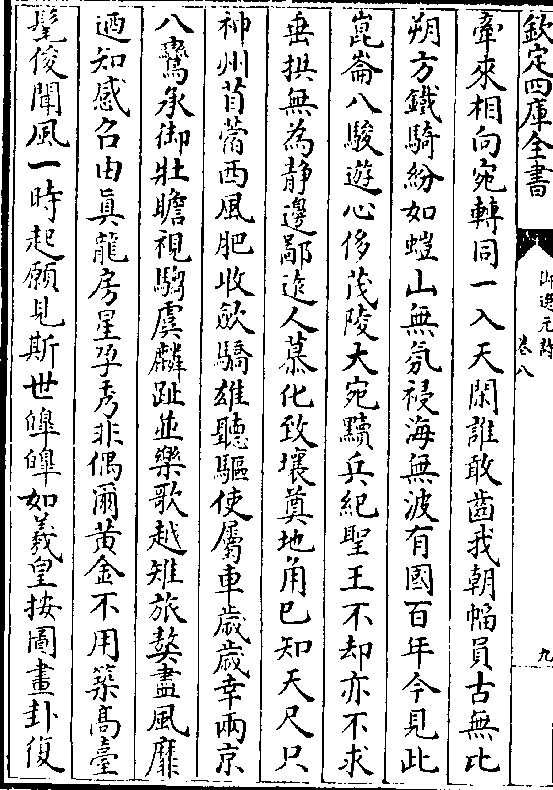 欽定四庫全書
御選元詩
卷八
九
牽來相向宛轉同一入天閑誰敢齒我朝幅員古無比
朔方鐵騎紛如螘山無氛祲海無波有國百年今見此
崑崙八駿遊心侈茂陵大宛黷兵紀聖王不却亦不求
垂拱無為靜邊鄙逺人慕化致壤奠地角已知天尺只
神州苜蓿西風肥收斂驕雄聽驅使屬車歲歲幸兩京
八鸞承御壯瞻視騶虞麟趾並樂歌越雉旅獒盡風靡
迺知感召由眞龍房星孕秀非偶爾黃金不用築髙臺
髦俊聞風一時起願見斯世皥皥如羲皇按圖畫卦復